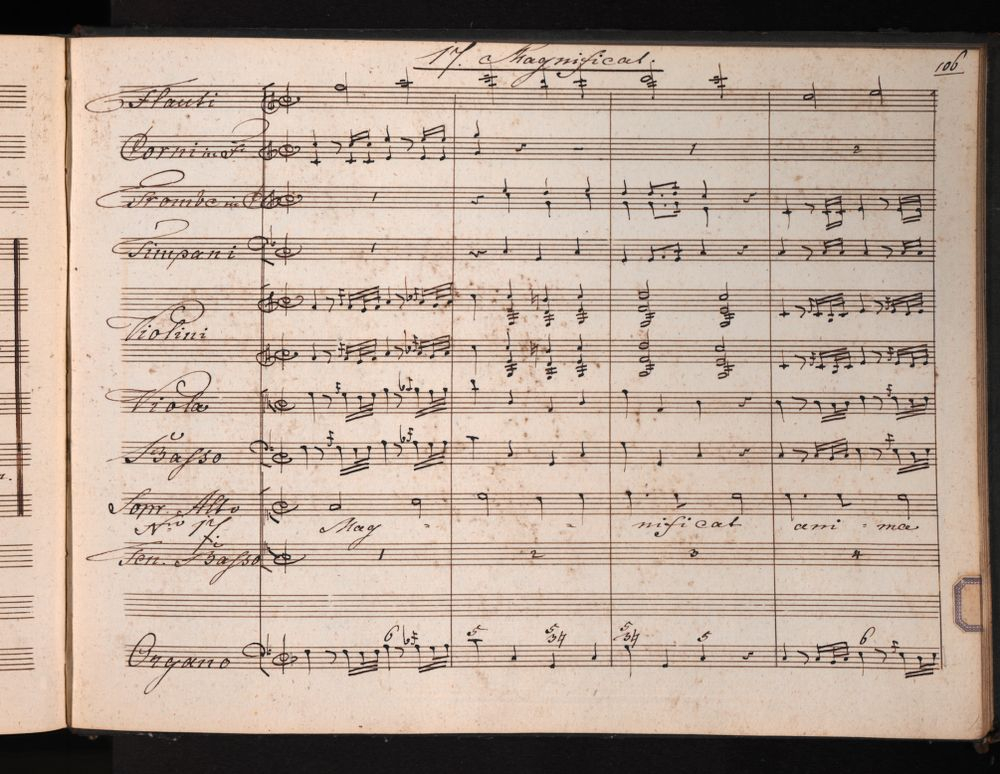 17. Magnificat.
106
Flauti
Corni in F
1 2
Trombe in C
1
Timpani
1
Violini
Viola
Basso
Sopr. Alto
No 17
Mag - - nificat ani - ma
Ten. Basso
1 2 3 4
6 5 5 34 5 34 5 6
Organo